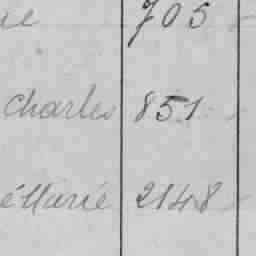 705
Charles 851
é Marie 2148